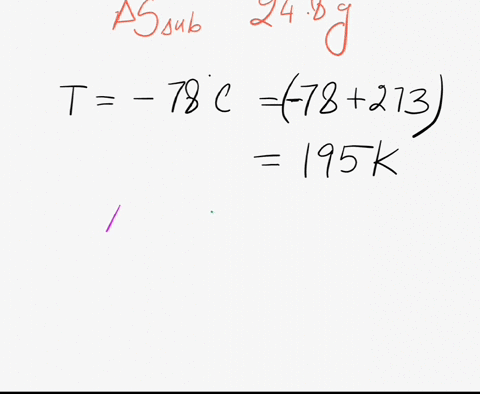 ΔSsub 24.8g
T = - 78°C = (-78+273)
= 195K